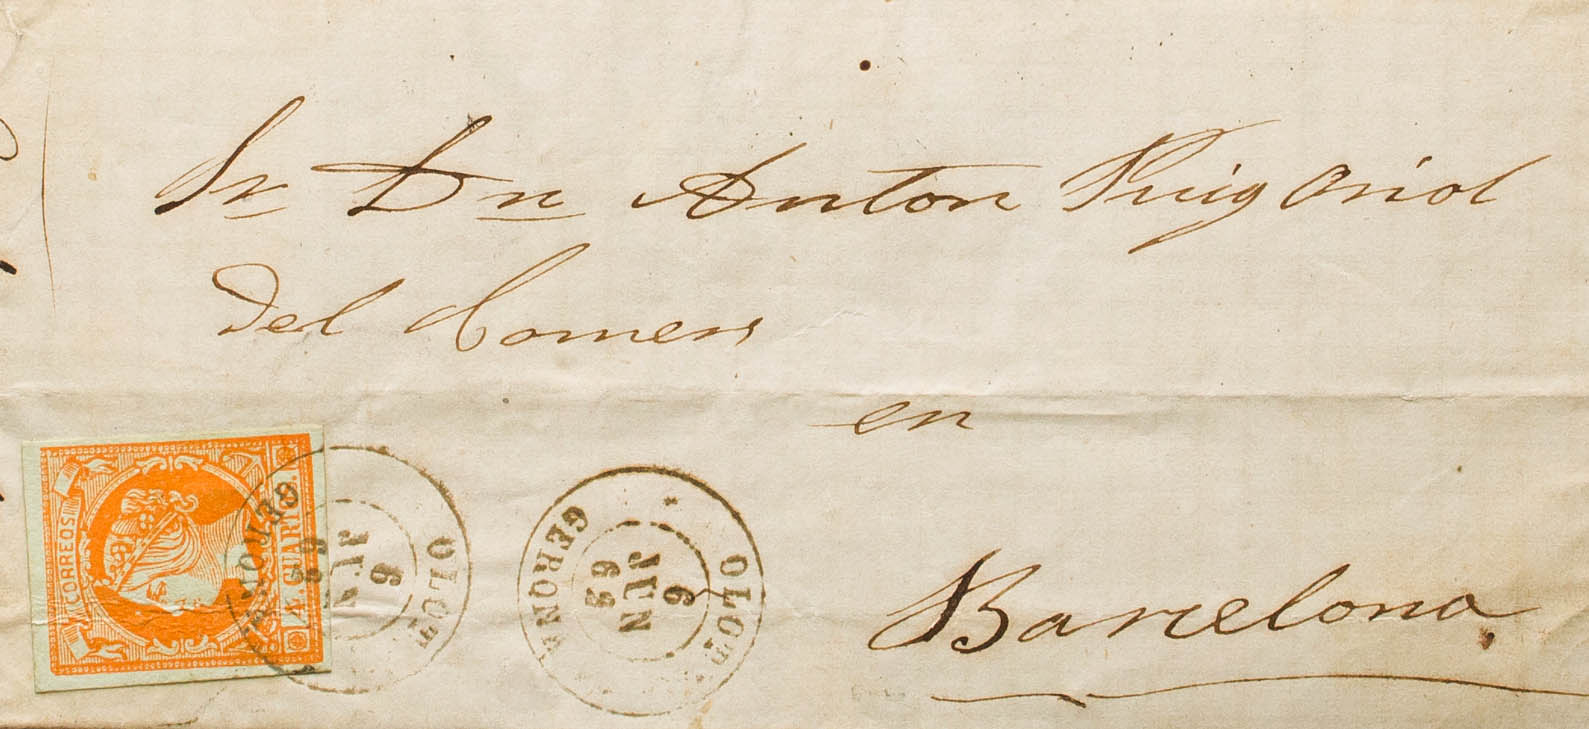 Sr Dn Anton Puig Oriol
Del Comers
en
Barcelona
CORREOS
4 CUARTOS
OLOT
6
JUN
GERONA
OLOT
6
JUN
62
GERONA